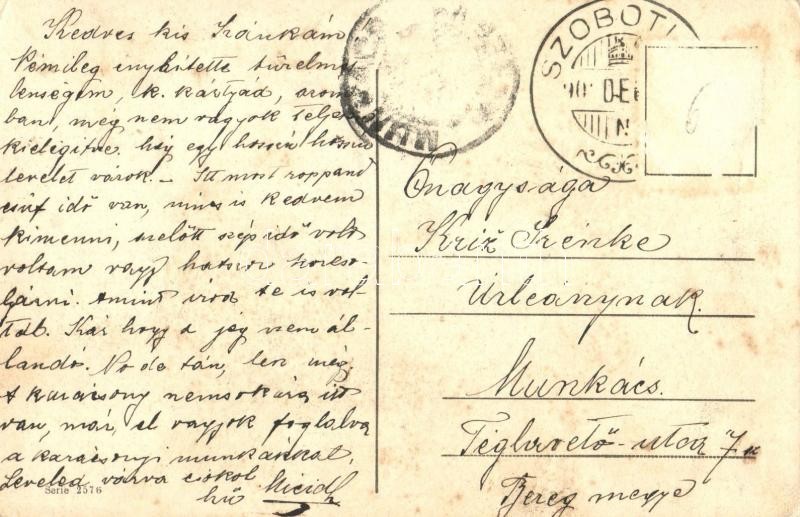 Kedves kis Irénkám
Némileg enyhítette türelmet-
lenségem, k. kartyád, azon-
ban, még nem vagyok teljes
kielégitve. hÿ egy hosszú hosszú
levelet várok. – Itt most roppand
csúf idő van, nincs is kedvem
kimenni, ezelőtt szép idő volt
voltam vagy hatszor korcso-
lyázni. Amint irod te is vol-
tál. Kár hogy a jég nem ál-
landó. No de tán, lesz még.
A karácsony nemsokára itt
van, már, el vagyok foglalva
a karácsonyi munkákkal.
Leveled várva csókol
hű Miczid
Serie 2576
MUNKÁCS
SZOBOTI
DE
N
6
Őnagysága
Križ Irénke
Úrleánynak.
Munkács.
Téglavető-utca 7 sz
Bereg megye